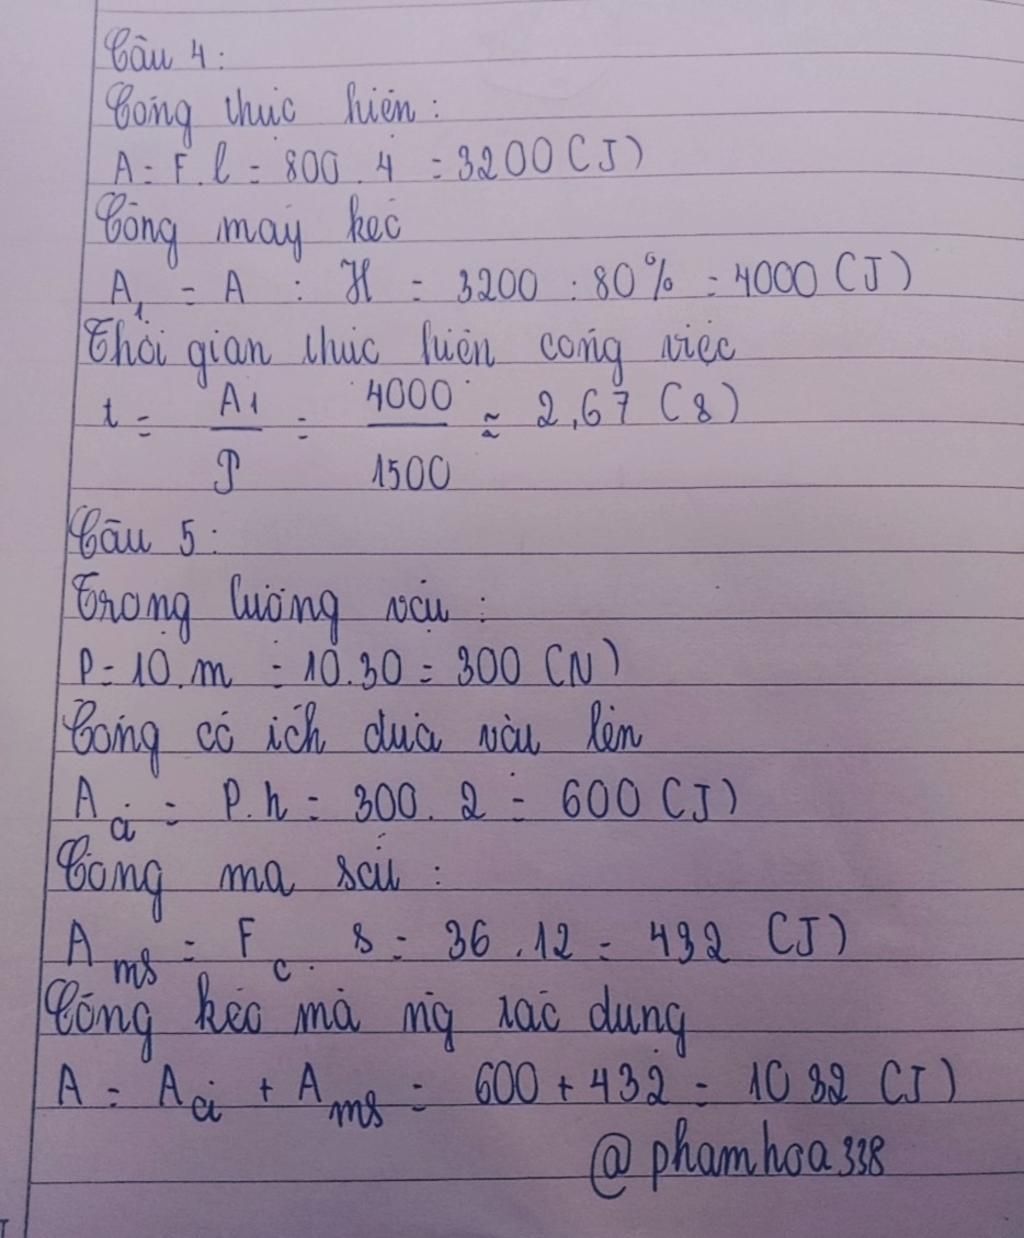 Câu 4:
Công thực hiện:
A = F.l = 800.4 = 3200 (J)
Công máy kéo
A₁ = A : H = 3200 : 80% = 4000 (J)
Thời gian thực hiện công việc
t = A1 / P = 4000 / 1500 ≈ 2,67 (s)
Câu 5:
Trọng lượng vật:
P = 10.m = 10.30 = 300 (N)
Công có ích đưa vật lên
Aci = P.h = 300.2 = 600 (J)
Công ma sát:
Ams = Fc.s = 36.12 = 432 (J)
Công kéo mà ng tác dụng
A = Aci + Ams = 600 + 432 = 1032 (J)
@phamhoa338